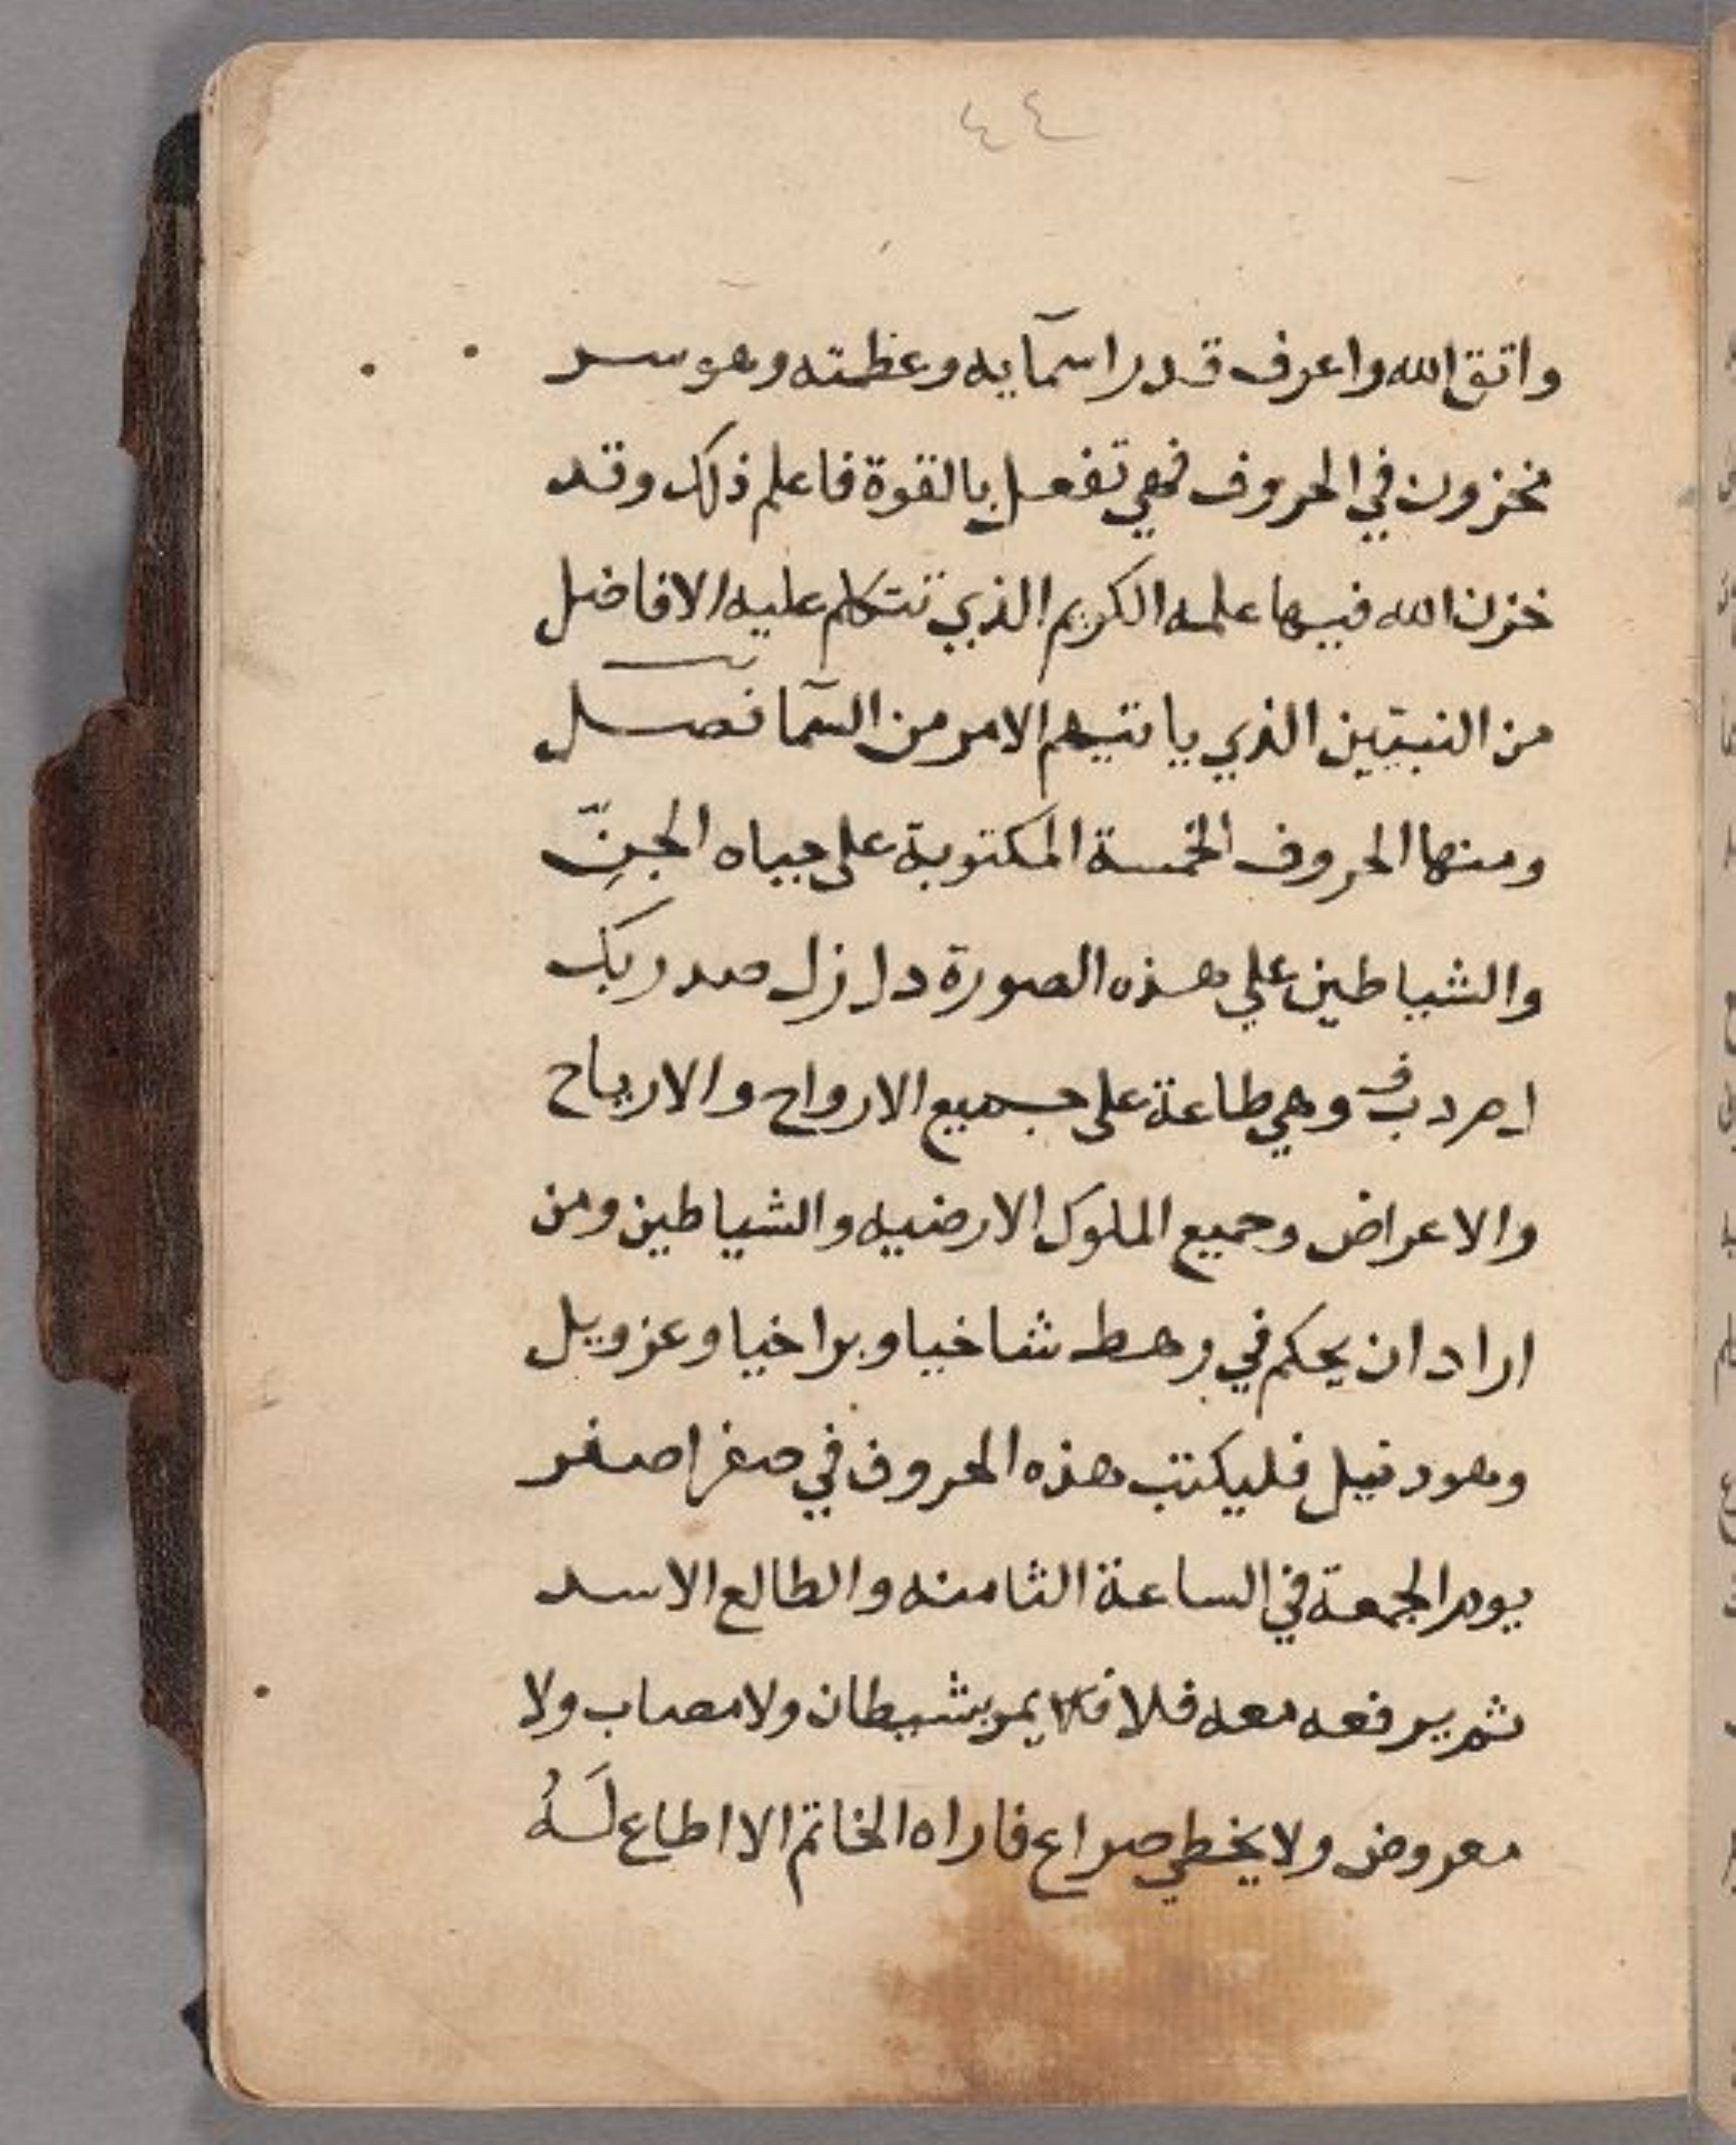 ٤٤
واتق الله واعرف قدر اسمآيه وعظمته وهو سر
مخزون في الحروف فهي تفعل بالقوة فاعلم ذلك وقد
خزن الله فيها علمه الكريم الذي تتكلم عليه الافاضل
من النبيين الذي ياتيهم الامر من السمآ فصل
ومنها الحروف الخمسة المكتوبة على جباه الجنّ
والشياطين علي هذه الصورة
وهي طاعة على جميع الارواح والارياح
والاعراض وجميع الملوك الارضيه والشياطين ومن
اراد ان يحكم في رهط شاخيا وبراخيا وعزويل
وهودنيل فليكتب هذه الحروف في صفر اصفر
يوم الجمعة في الساعة الثامنه والطالع الاسد
ثم يرفعه معه فلا يمر بشيطان ولا مصاب ولا
معروض ولا يخطي صراع فاراه الخاتم الا اطاع لَهُ